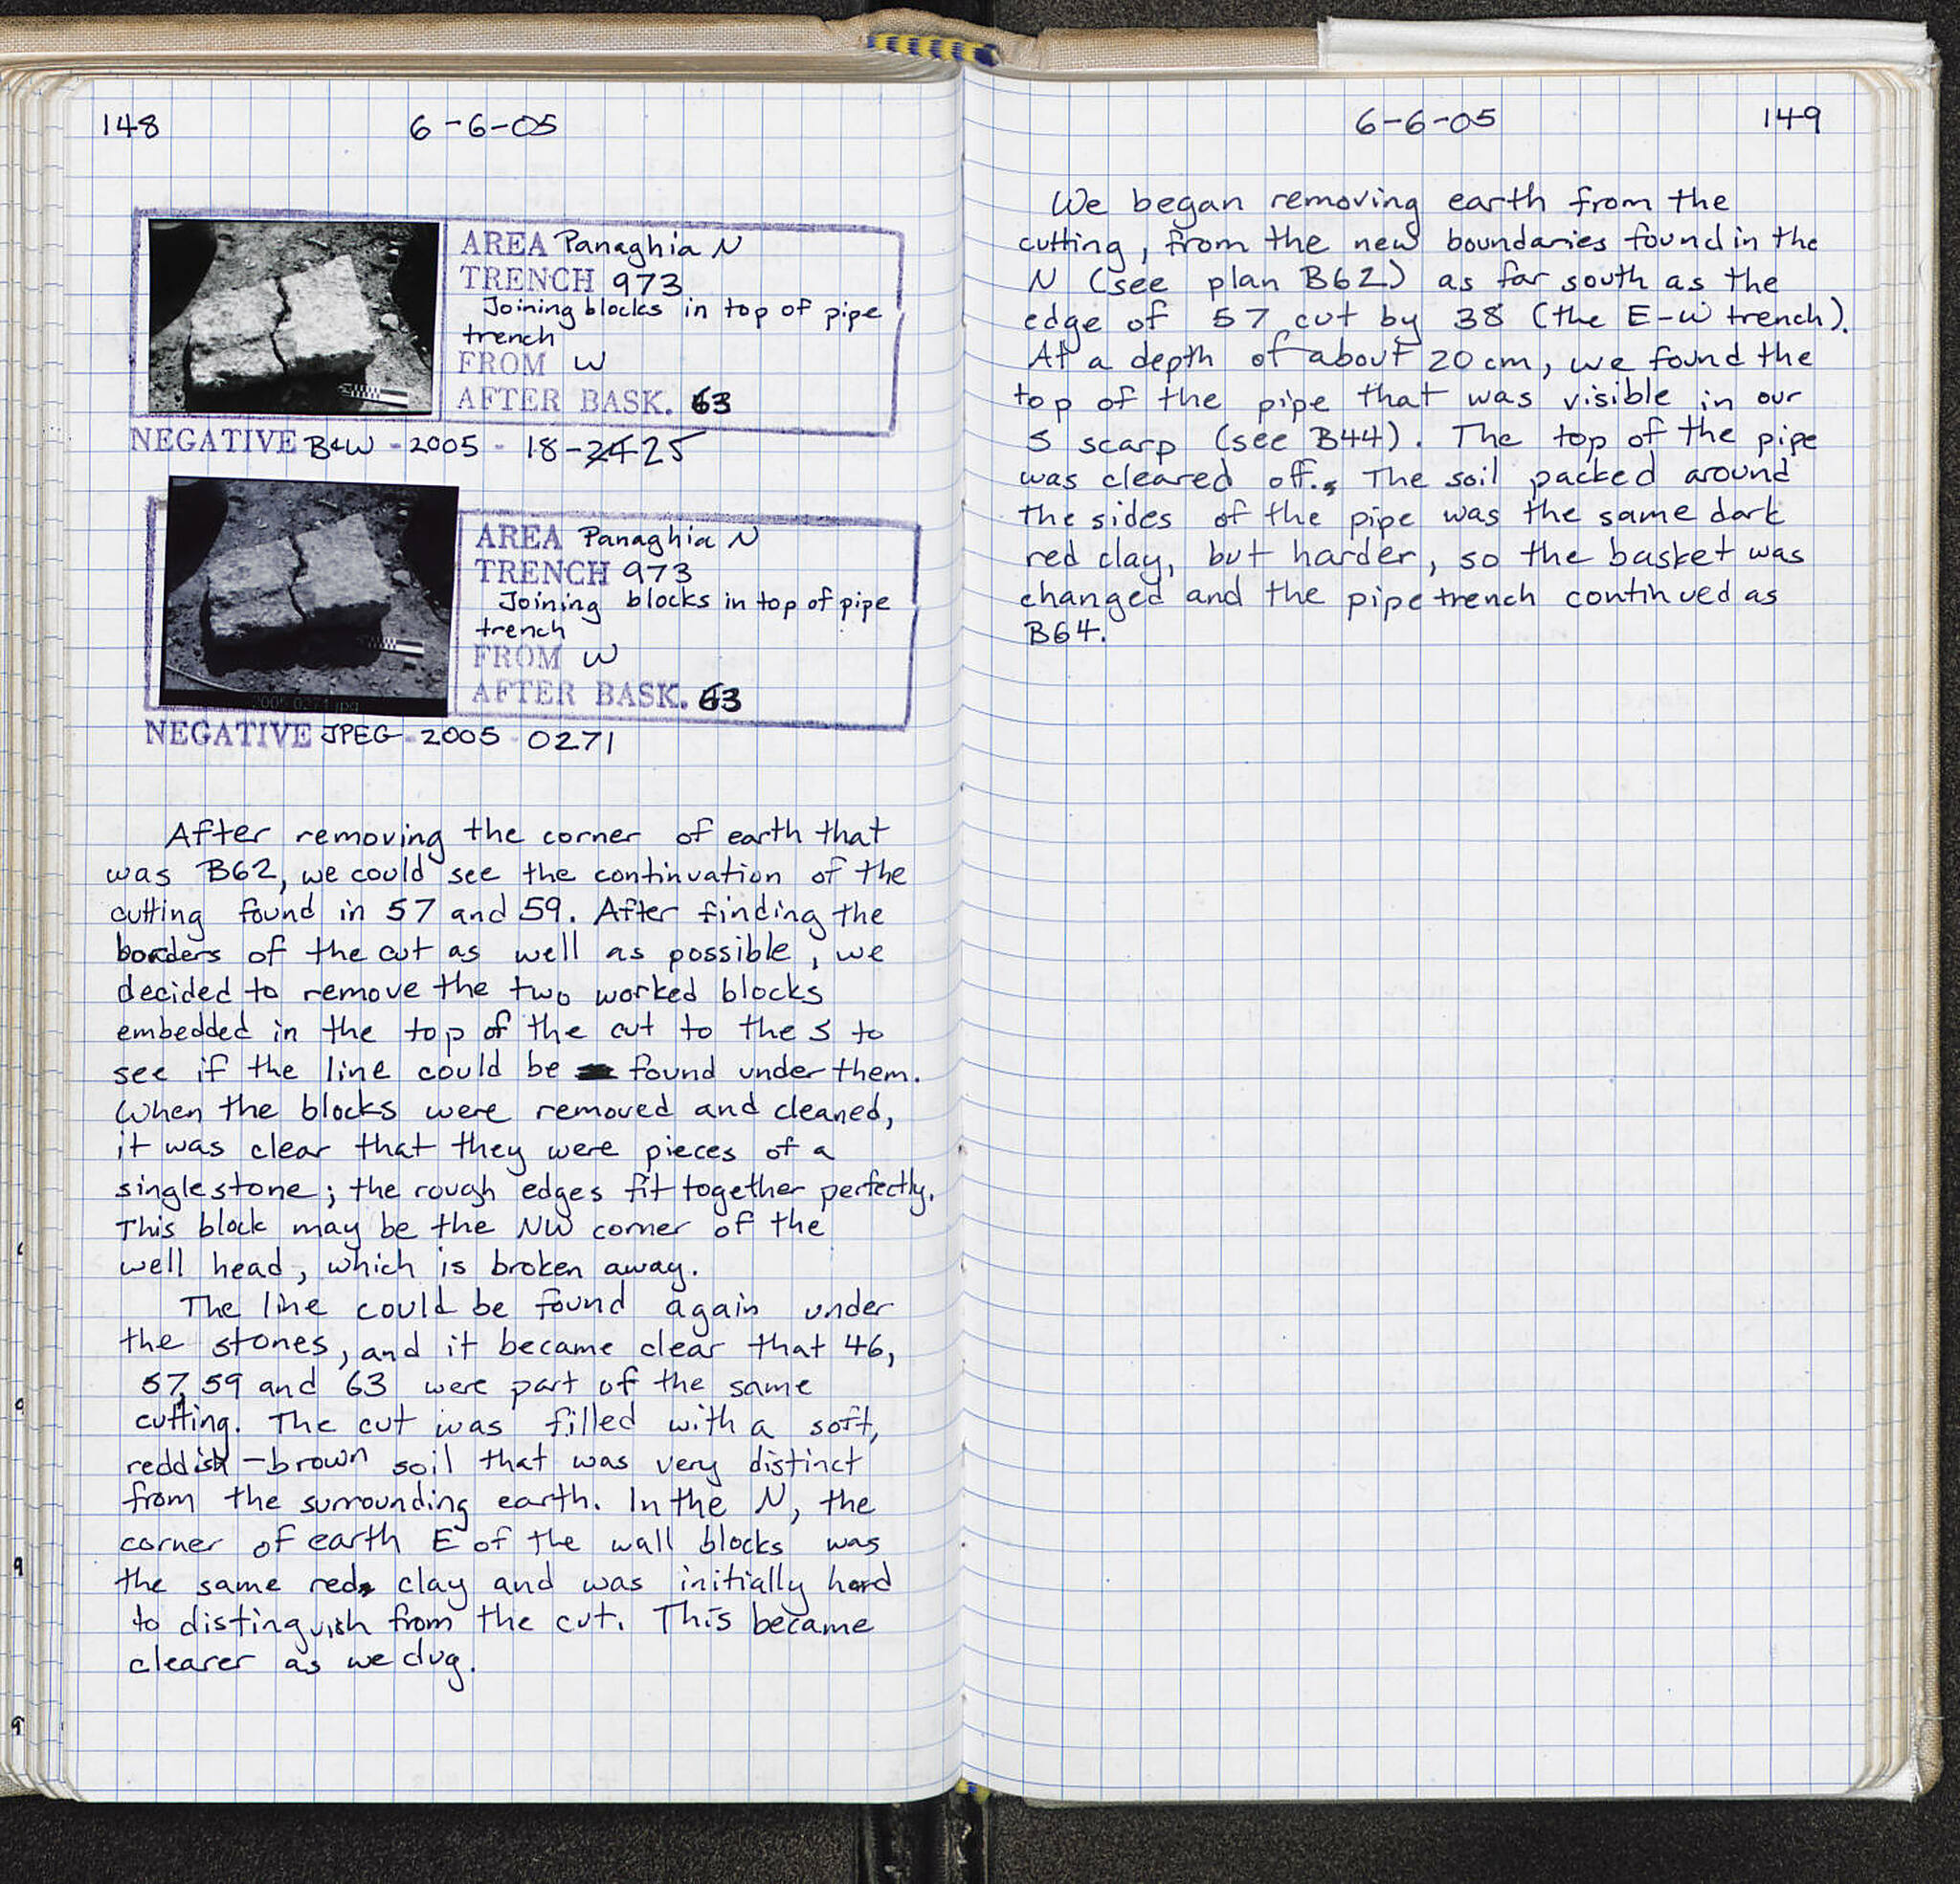 148
6-6-05
AREA Panaghia N
TRENCH 973
Joining blocks in top of pipe
trench
FROM W
AFTER BASK. 63
NEGATIVE B&W - 2005 - 18-25
AREA Panaghia N
TRENCH 973
Joining blocks in top of pipe
trench
FROM W
AFTER BASK. 63
2005 0271.jpg
NEGATIVE JPEG - 2005 - 0271
After removing the corner of earth that
was B62, we could see the continuation of the
cutting found in 57 and 59. After finding the
borders of the cut as well as possible, we
decided to remove the two worked blocks
embedded in the top of the cut to the S to
see if the line could be found under them.
When the blocks were removed and cleaned,
it was clear that they were pieces of a
single stone; the rough edges fit together perfectly.
This block may be the NW corner of the
well head, which is broken away.
The line could be found again under
the stones, and it became clear that 46,
57, 59 and 63 were part of the same
cutting. The cut was filled with a soft,
reddish-brown soil that was very distinct
from the surrounding earth. In the N, the
corner of earth E of the wall blocks was
the same red clay and was initially hard
to distinguish from the cut. This became
clearer as we dug.
6-6-05
149
We began removing earth from the
cutting, from the new boundaries found in the
N (see plan B62) as far south as the
edge of 57 cut by 38 (the E-W trench).
At a depth of about 20 cm, we found the
top of the pipe that was visible in our
S scarp (see B44). The top of the pipe
was cleared off. The soil packed around
the sides of the pipe was the same dark
red clay, but harder, so the basket was
changed and the pipe trench continued as
B64.